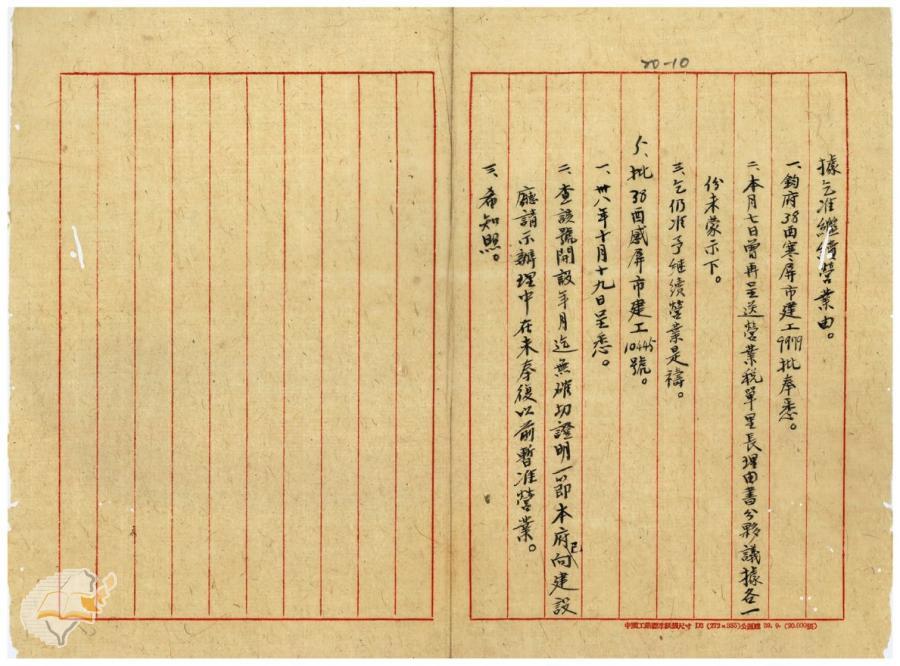 20-10
據乞准繼續營業由。
一、鈞府38酉寒屏市建工9979批奉悉。
二、本月七日曾再呈送營業稅單里長理由書分夥議據各一
份未蒙示下。
三、乞仍准予继續營業是禱。
5、批38酉感屏市建工10445號。
一、卅八年十月十九日呈悉。
二、查該號開設年月迄無確切證明一節本府已向建設
廳請示辦理中在未奉復以前暫准營業。
三、希知照。